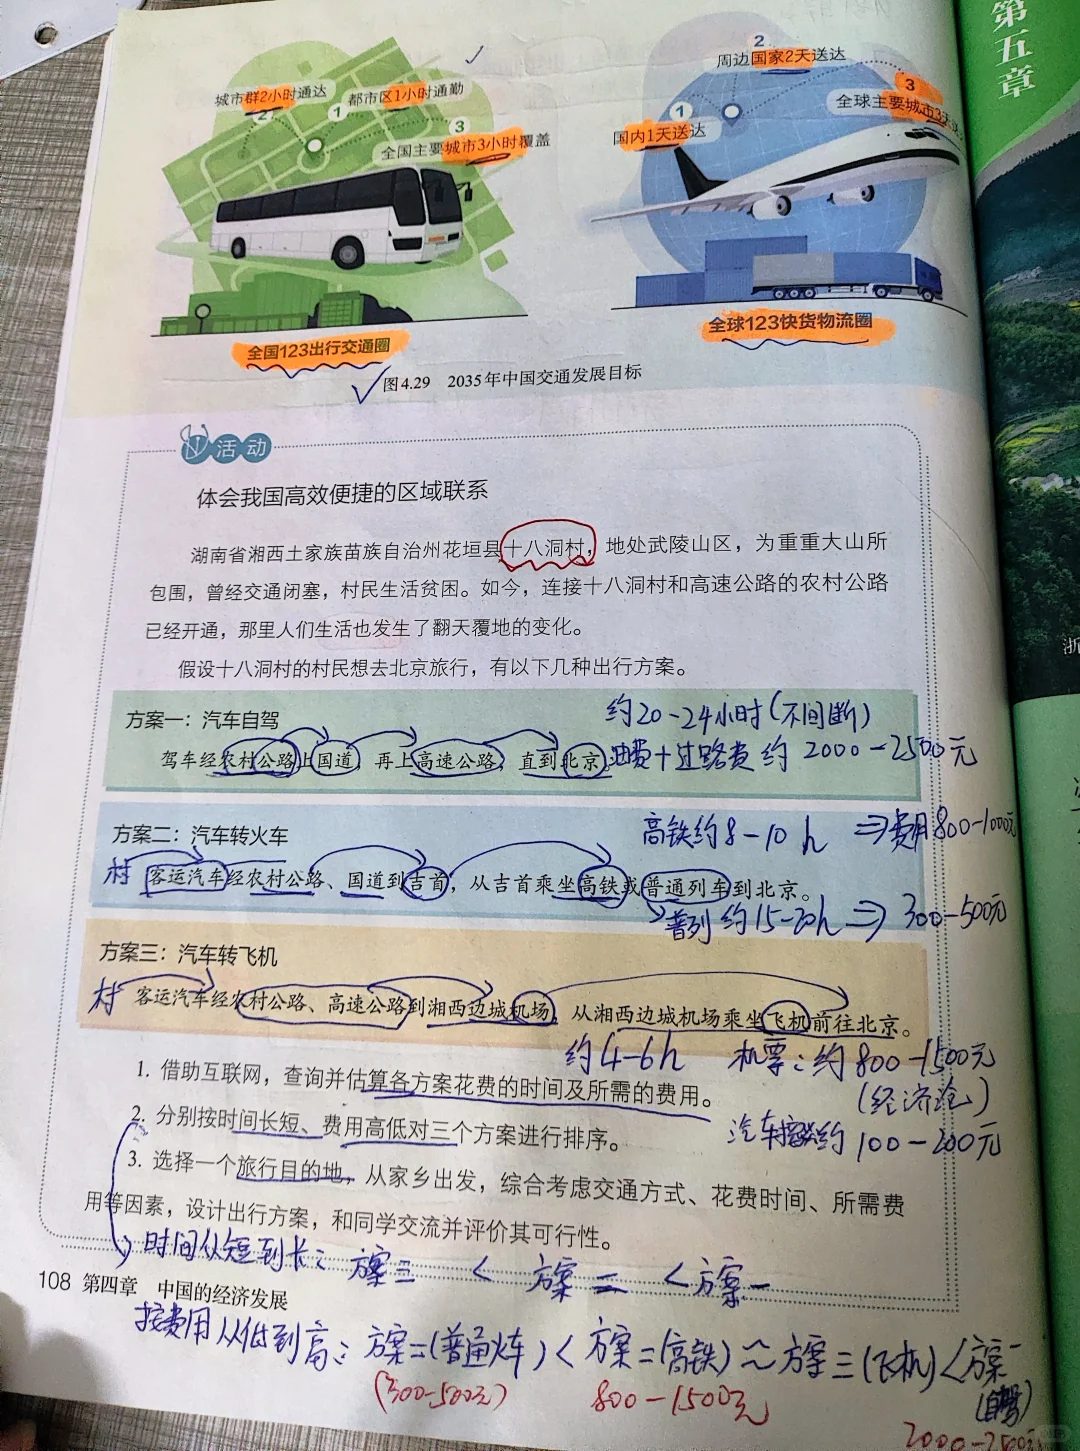 第五章
城市群2小时通达
都市区1小时通勤
2
1
3
全国主要城市3小时覆盖
全国123出行交通圈
2
周边国家2天送达
3
全球主要城市3天
1
国内1天送达
全球123快货物流圈
图4.29 2035年中国交通发展目标
活动
体会我国高效便捷的区域联系
湖南省湘西土家族苗族自治州花垣县十八洞村，地处武陵山区，为重重大山所
包围，曾经交通闭塞，村民生活贫困。如今，连接十八洞村和高速公路的农村公路
已经开通，那里人们生活也发生了翻天覆地的变化。
假设十八洞村的村民想去北京旅行，有以下几种出行方案。
方案一：汽车自驾
约20-24小时(不间断)
驾车经农村公路上国道，再上高速公路，直到北京。
油费+过路费 约 2000-2500元
方案二：汽车转火车
高铁约8-10h ⇒费用800-1000元
村 客运汽车经农村公路、国道到吉首，从吉首乘坐高铁或普通列车到北京。
普列 约15-20h ⇒ 300-500元
方案三：汽车转飞机
村 客运汽车经农村公路、高速公路到湘西边城机场，从湘西边城机场乘坐飞机前往北京。
约4-6h 机票：约800-1500元
(经济舱)
1. 借助互联网，查询并估算各方案花费的时间及所需的费用。
2. 分别按时间长短、费用高低对三个方案进行排序。
汽车 约 100-200元
3. 选择一个旅行目的地，从家乡出发，综合考虑交通方式、花费时间、所需费
用等因素，设计出行方案，和同学交流并评价其可行性。
时间从短到长：方案三 < 方案二 < 方案一
108 第四章 中国的经济发展
按费用从低到高：方案二(普通火车) < 方案二(高铁) ≈ 方案三(飞机) < 方案一
(自驾)
(300-500元) 800-1500元 2000-2500元
浙